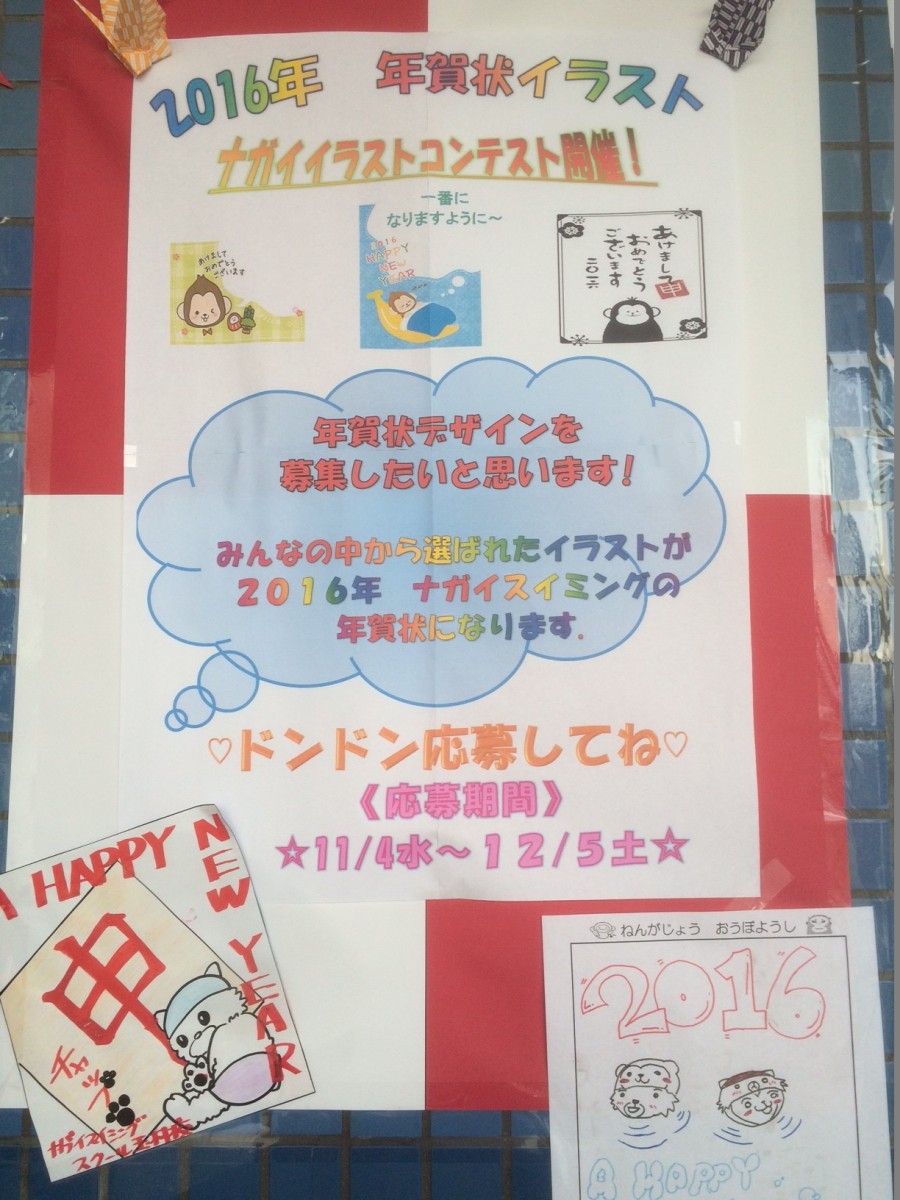 2016年 年賀状イラスト
ナガイイラストコンテスト開催！
一番に
なりますように～
あけまして
おめでとう
ございます
2016
HAPPY
NEW
YEAR
あけまして
おめでとう
ございます
二〇一六
申
年賀状デザインを
募集したいと思います！
みんなの中から選ばれたイラストが
２０１６年 ナガイスイミングの
年賀状になります．
♡ドンドン応募してね♡
《応募期間》
☆11/4水～１２/５土☆
A HAPPY NEW YEAR
申
チャップ
ナガイスイミング
スクール
ねんがじょう おうぼようし
2016
A HAPPY